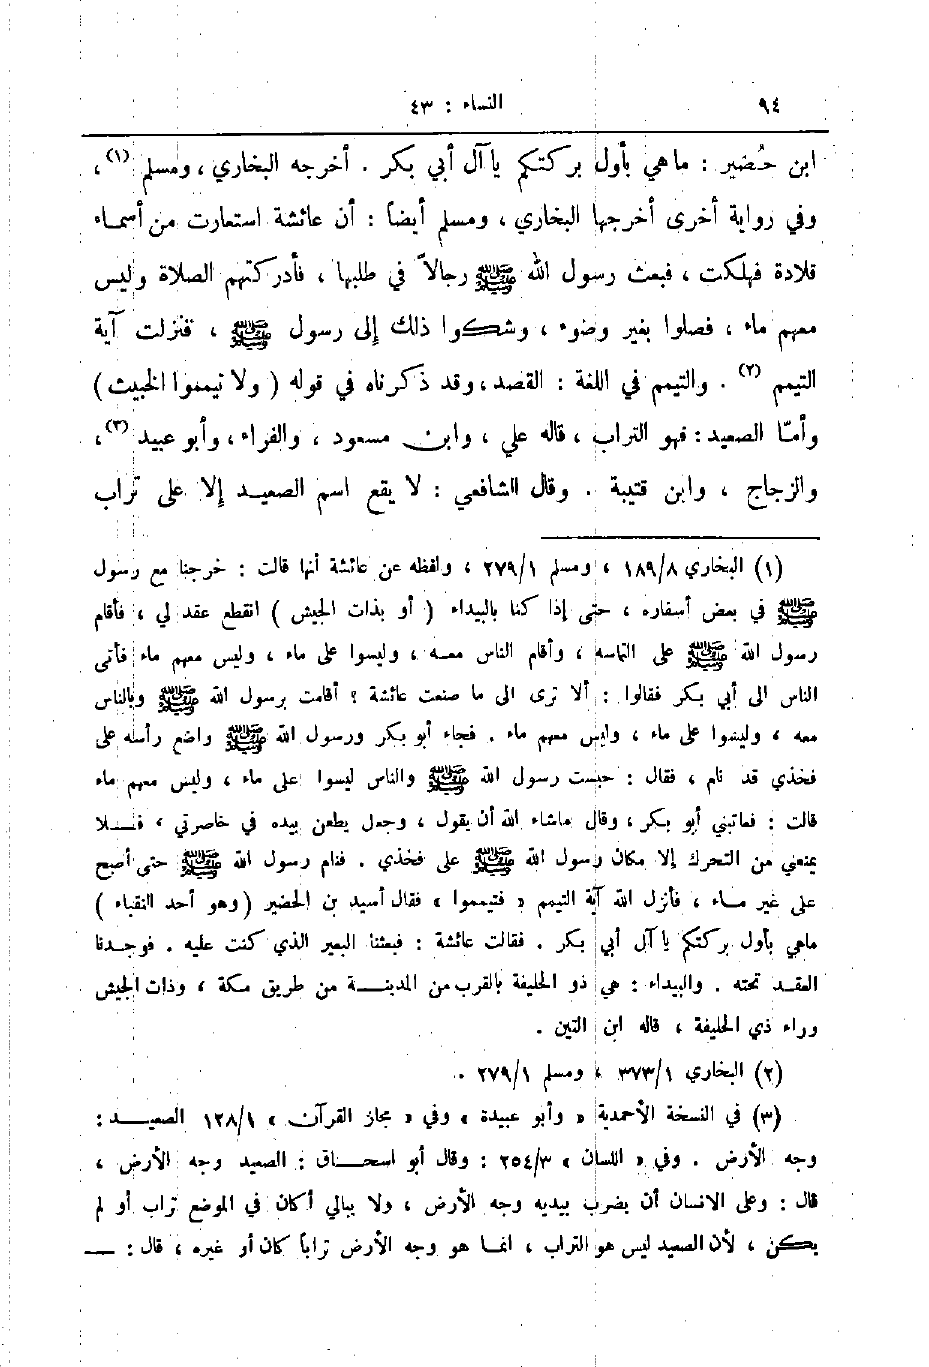 ٩٤
النساء : ٤٣
ابن حُضير : ماهي بأول بركتكم يا آل أبي بكر . أخرجه البخاري ، ومسلم (١) ،
وفي رواية أخرى أخرجها البخاري ، ومسلم أيضاً : أن عائشة استعارت من أسماء
قلادة فهلكت ، فبعث رسول الله ﷺ رجالاً في طلبها ، فأدركتهم الصلاة وليس
معهم ماء ، فصلوا بغير وضوء ، وشكوا ذلك إلى رسول ﷺ ، فنزلت آية
التيمم (٢) . والتيمم في اللغة : القصد ، وقد ذكرناه في قوله ( ولا تيمموا الخبيث )
وأمّا الصعيد : فهو التراب ، قاله علي ، وابن مسعود ، والفراء ، وأبو عبيد (٣) ،
والزجاج ، وابن قتيبة . وقال الشافعي : لا يقع اسم الصعيد إلا على تراب
(١) البخاري ١٨٩/٨ ، ومسلم ٢٧٩/١ ، ولفظه عن عائشة أنها قالت : خرجنا مع رسول
ﷺ في بعض أسفاره ، حتى إذا كنا بالبيداء ( أو بذات الجيش ) انقطع عقد لي ، فأقام
رسول الله ﷺ على التماسه ، وأقام الناس معه ، وليسوا على ماء ، وليس معهم ماء فأتى
الناس الى أبي بكر فقالوا : ألا ترى الى ما صنعت عائشة ؟ أقامت برسول الله ﷺ وبالناس
معه ، وليسوا على ماء ، وليس معهم ماء . فجاء أبو بكر ورسول الله ﷺ واضع رأسه على
فخذي قد نام ، فقال : حبست رسول الله ﷺ والناس ليسوا على ماء ، وليس معهم ماء
قالت : فعاتبني أبو بكر ، وقال ماشاء الله أن يقول ، وجعل يطعن بيده في خاصرتي ، فلا
يمنعني من التحرك إلا مكان رسول الله ﷺ على فخذي . فنام رسول الله ﷺ حتى أصبح
على غير ماء ، فأنزل الله آية التيمم « فتيمموا » فقال أسيد بن الحضير ( وهو أحد النقباء )
ماهي بأول بركتكم يا آل أبي بكر . فقالت عائشة : فبعثنا البعير الذي كنت عليه . فوجدنا
العقد تحته . والبيداء : هي ذو الحليفة بالقرب من المدينة من طريق مكة ، وذات الجيش
وراء ذي الحليفة ، قاله ابن التين .
(٢) البخاري ٣٧٣/١ ، ومسلم ٢٧٩/١ .
(٣) في النسخة الأحمدية « وأبو عبيدة » وفي « مجاز القرآن » ١٢٨/١ الصعيد :
وجه الأرض . وفي « اللسان » ٢٥٤/٣ : وقال أبو اسحاق : الصعيد وجه الأرض ،
قال : وعلى الانسان أن يضرب بيديه وجه الأرض ، ولا يبالي أكان في الموضع تراب أو لم
يكن ، لأن الصعيد ليس هو التراب ، انما هو وجه الأرض تراباً كان أو غيره ، قال : —